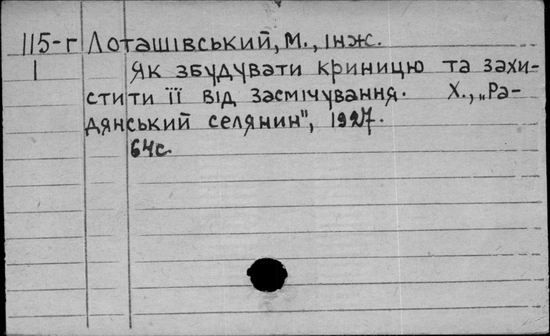 115-г Лоташівський, М., інж.
1 Як збудувати криницю та захи-
стити її від засмічування. Х., „Ра-
дянський селянин", 1927.
64с.